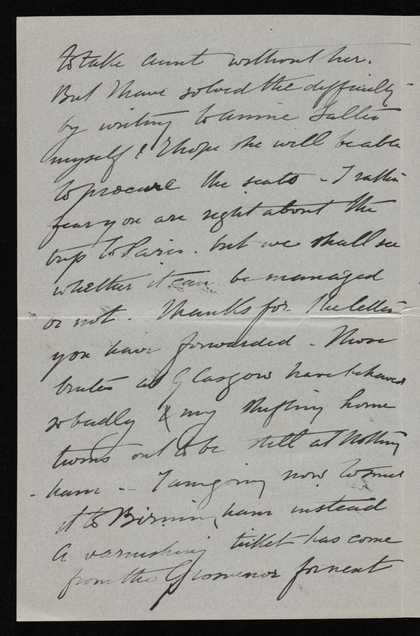 to take Aunt without her.
But I have solved the difficulty
by writing to Annie
myself & I hope she will be able
to procure the seats - I rather
fear you are right about the
trip to Paris. but we shall see
whether it can be managed
or not. Thanks for the letters
you have forwarded - Those
brutes at Glasgow have behaved
so badly & my home
turns out to be still at Notting
ham - I am going now to
it to Birmingham instead
A varnishing ticket has come
from the Grosvenor for next